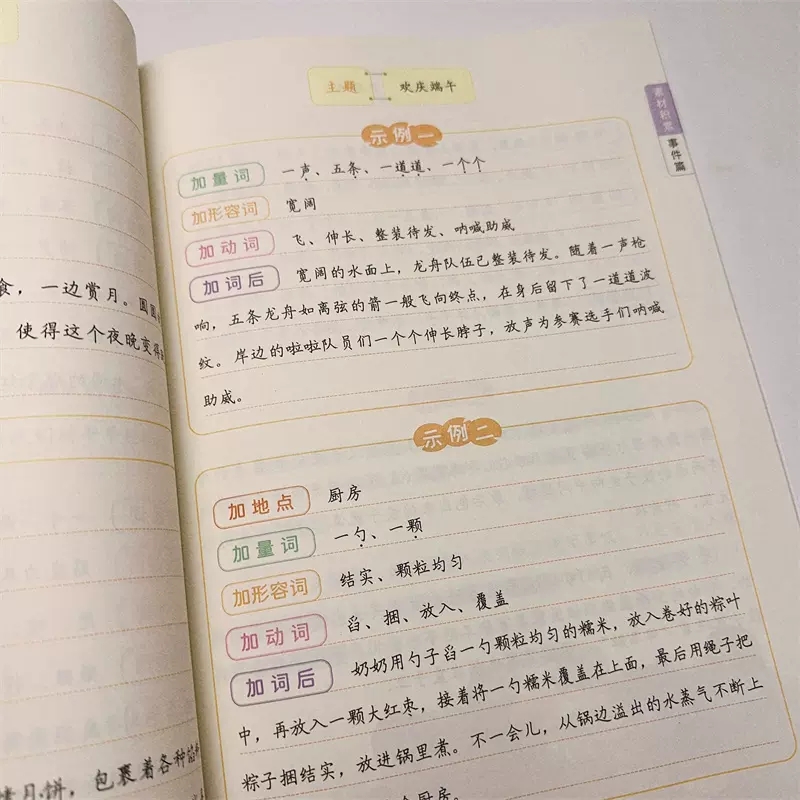 食，一边赏月。圆圆
使得这个夜晚变得
月饼，包裹着各种馅
主题 欢庆端午
素材积累
事件篇
示例一
加量词 一声、五条、一道道、一个个
加形容词 宽阔
加动词 飞、伸长、整装待发、呐喊助威
加词后 宽阔的水面上，龙舟队伍已整装待发。随着一声枪
响，五条龙舟如离弦的箭一般飞向终点，在身后留下了一道道波
纹。岸边的啦啦队员们一个个伸长脖子，放声为参赛选手们呐喊
助威。
示例二
加地点 厨房
加量词 一勺、一颗
加形容词 结实、颗粒均匀
加动词 舀、捆、放入、覆盖
加词后 奶奶用勺子舀一勺颗粒均匀的糯米，放入卷好的粽叶
中，再放入一颗大红枣，接着将一勺糯米覆盖在上面，最后用绳子把
粽子捆结实，放进锅里煮。不一会儿，从锅边溢出的水蒸气不断上
个厨房。